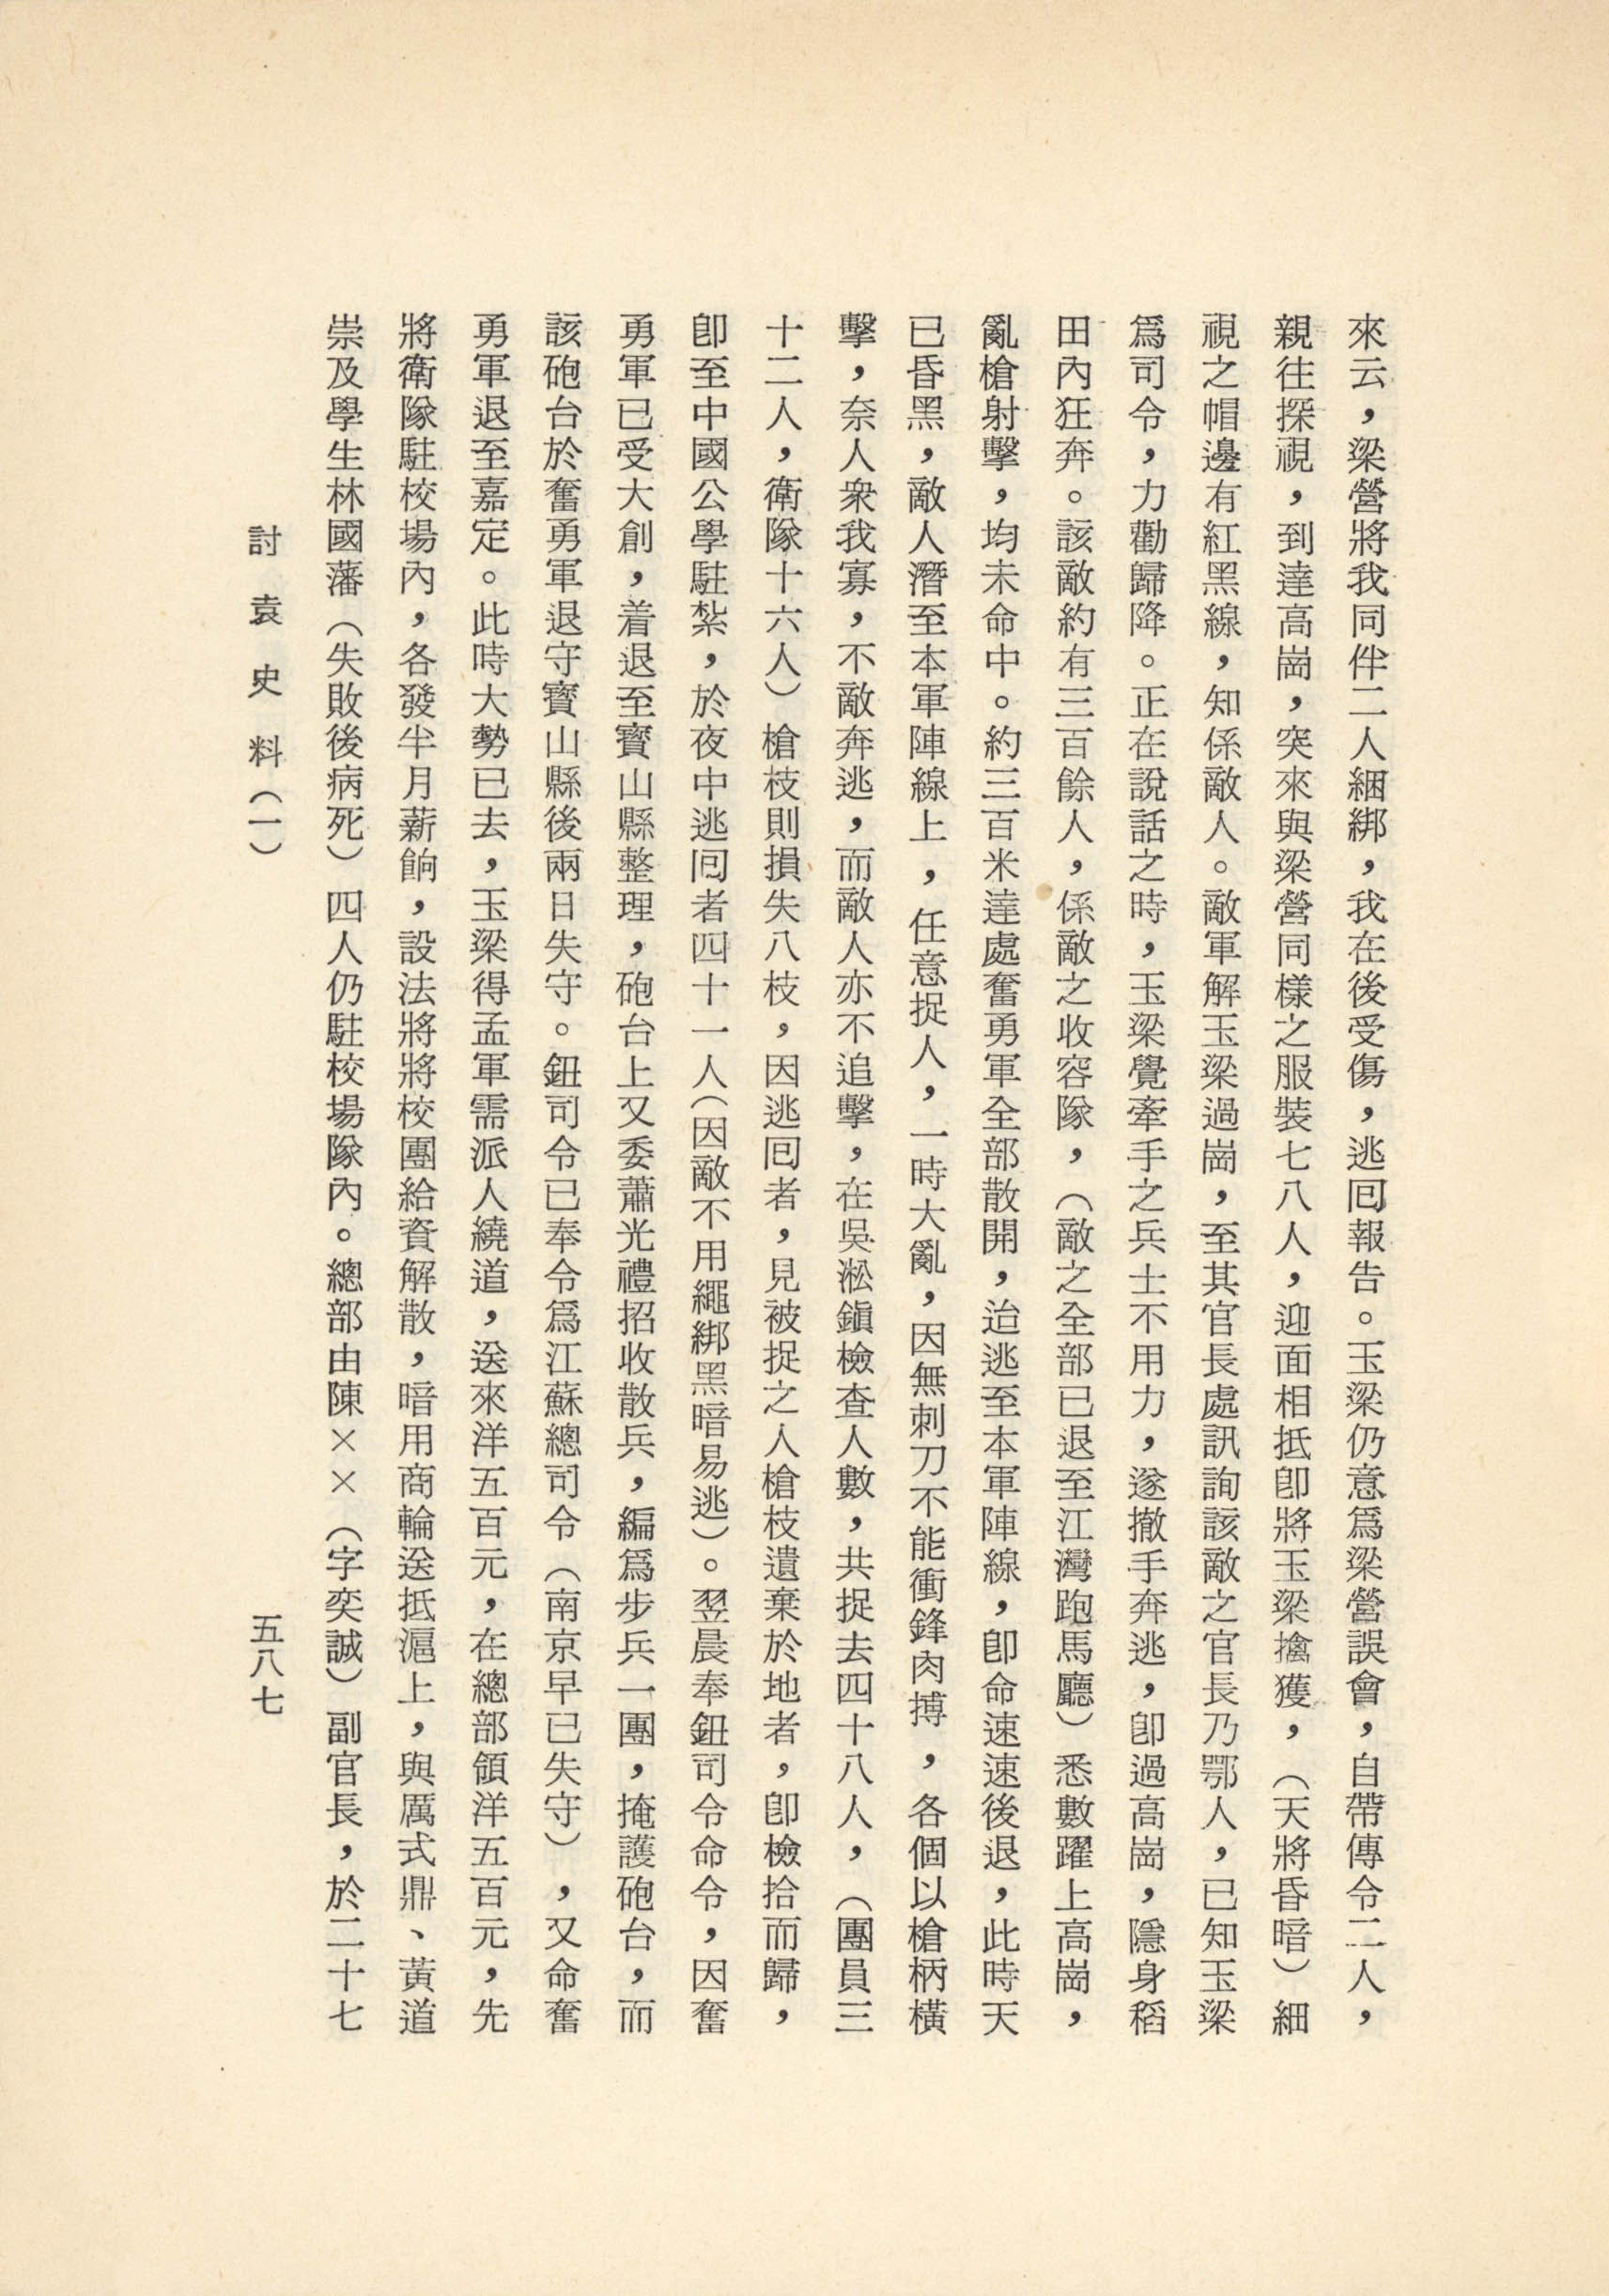 來云，梁營將我同伴二人綑綁，我在後受傷，逃囘報告。玉梁仍意爲梁營誤會，自帶傳令二人，
親往探視，到達高崗，突來與梁營同樣之服裝七八人，迎面相抵卽將玉梁擒獲，（天將昏暗）細
視之帽邊有紅黑線，知係敵人。敵軍解玉梁過崗，至其官長處訊詢該敵之官長乃鄂人，已知玉梁
爲司令，力勸歸降。正在說話之時，玉梁覺牽手之兵士不用力，遂撤手奔逃，卽過高崗，隱身稻
田內狂奔。該敵約有三百餘人，係敵之收容隊，（敵之全部已退至江灣跑馬廳）悉數躍上高崗，
亂槍射擊，均未命中。約三百米達處奮勇軍全部散開，迨逃至本軍陣線，卽命速速後退，此時天
已昏黑，敵人潛至本軍陣線上，任意捉人，一時大亂，因無刺刀不能衝鋒肉搏，各個以槍柄橫
擊，奈人衆我寡，不敵奔逃，而敵人亦不追擊，在吳淞鎭檢查人數，共捉去四十八人，（團員三
十二人，衛隊十六人）槍枝則損失八枝，因逃囘者，見被捉之人槍枝遺棄於地者，卽檢拾而歸，
卽至中國公學駐紮，於夜中逃囘者四十一人（因敵不用繩綁黑暗易逃）。翌晨奉鈕司令命令，因奮
勇軍已受大創，着退至寶山縣整理，砲台上又委蕭光禮招收散兵，編爲步兵一團，掩護砲台，而
該砲台於奮勇軍退守寶山縣後兩日失守。鈕司令已奉令爲江蘇總司令（南京早已失守），又命奮
勇軍退至嘉定。此時大勢已去，玉梁得孟軍需派人繞道，送來洋五百元，在總部領洋五百元，先
將衛隊駐校場內，各發半月薪餉，設法將將校團給資解散，暗用商輪送抵滬上，與厲式鼎、黃道
崇及學生林國藩（失敗後病死）四人仍駐校場隊內。總部由陳××（字奕誠）副官長，於二十七
討袁史料（一）
五八七